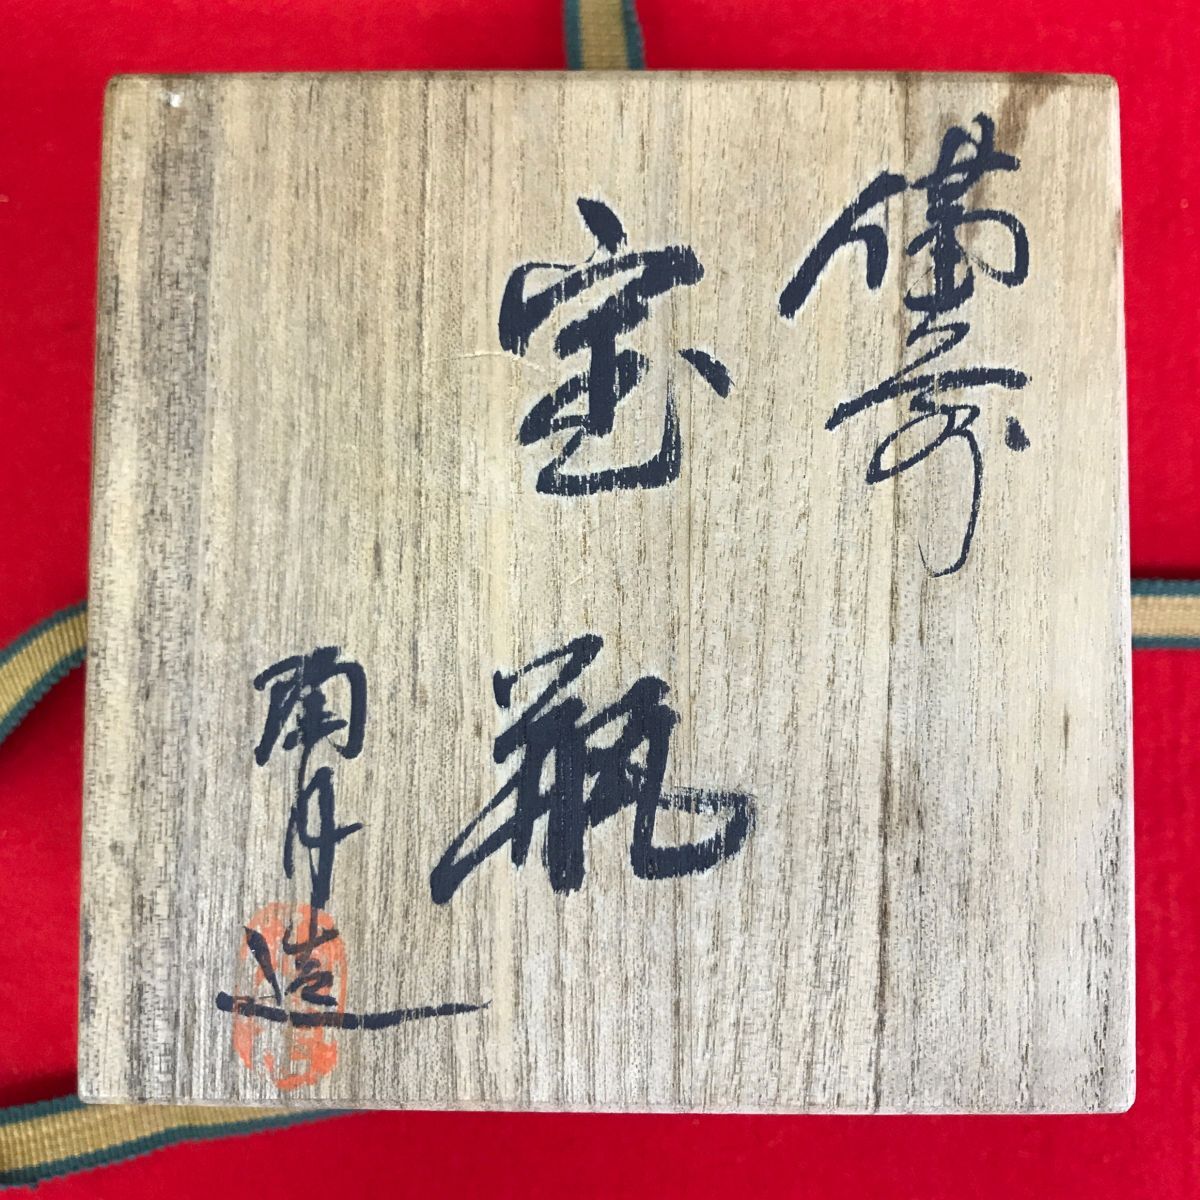 備前
宝瓶
陶月造